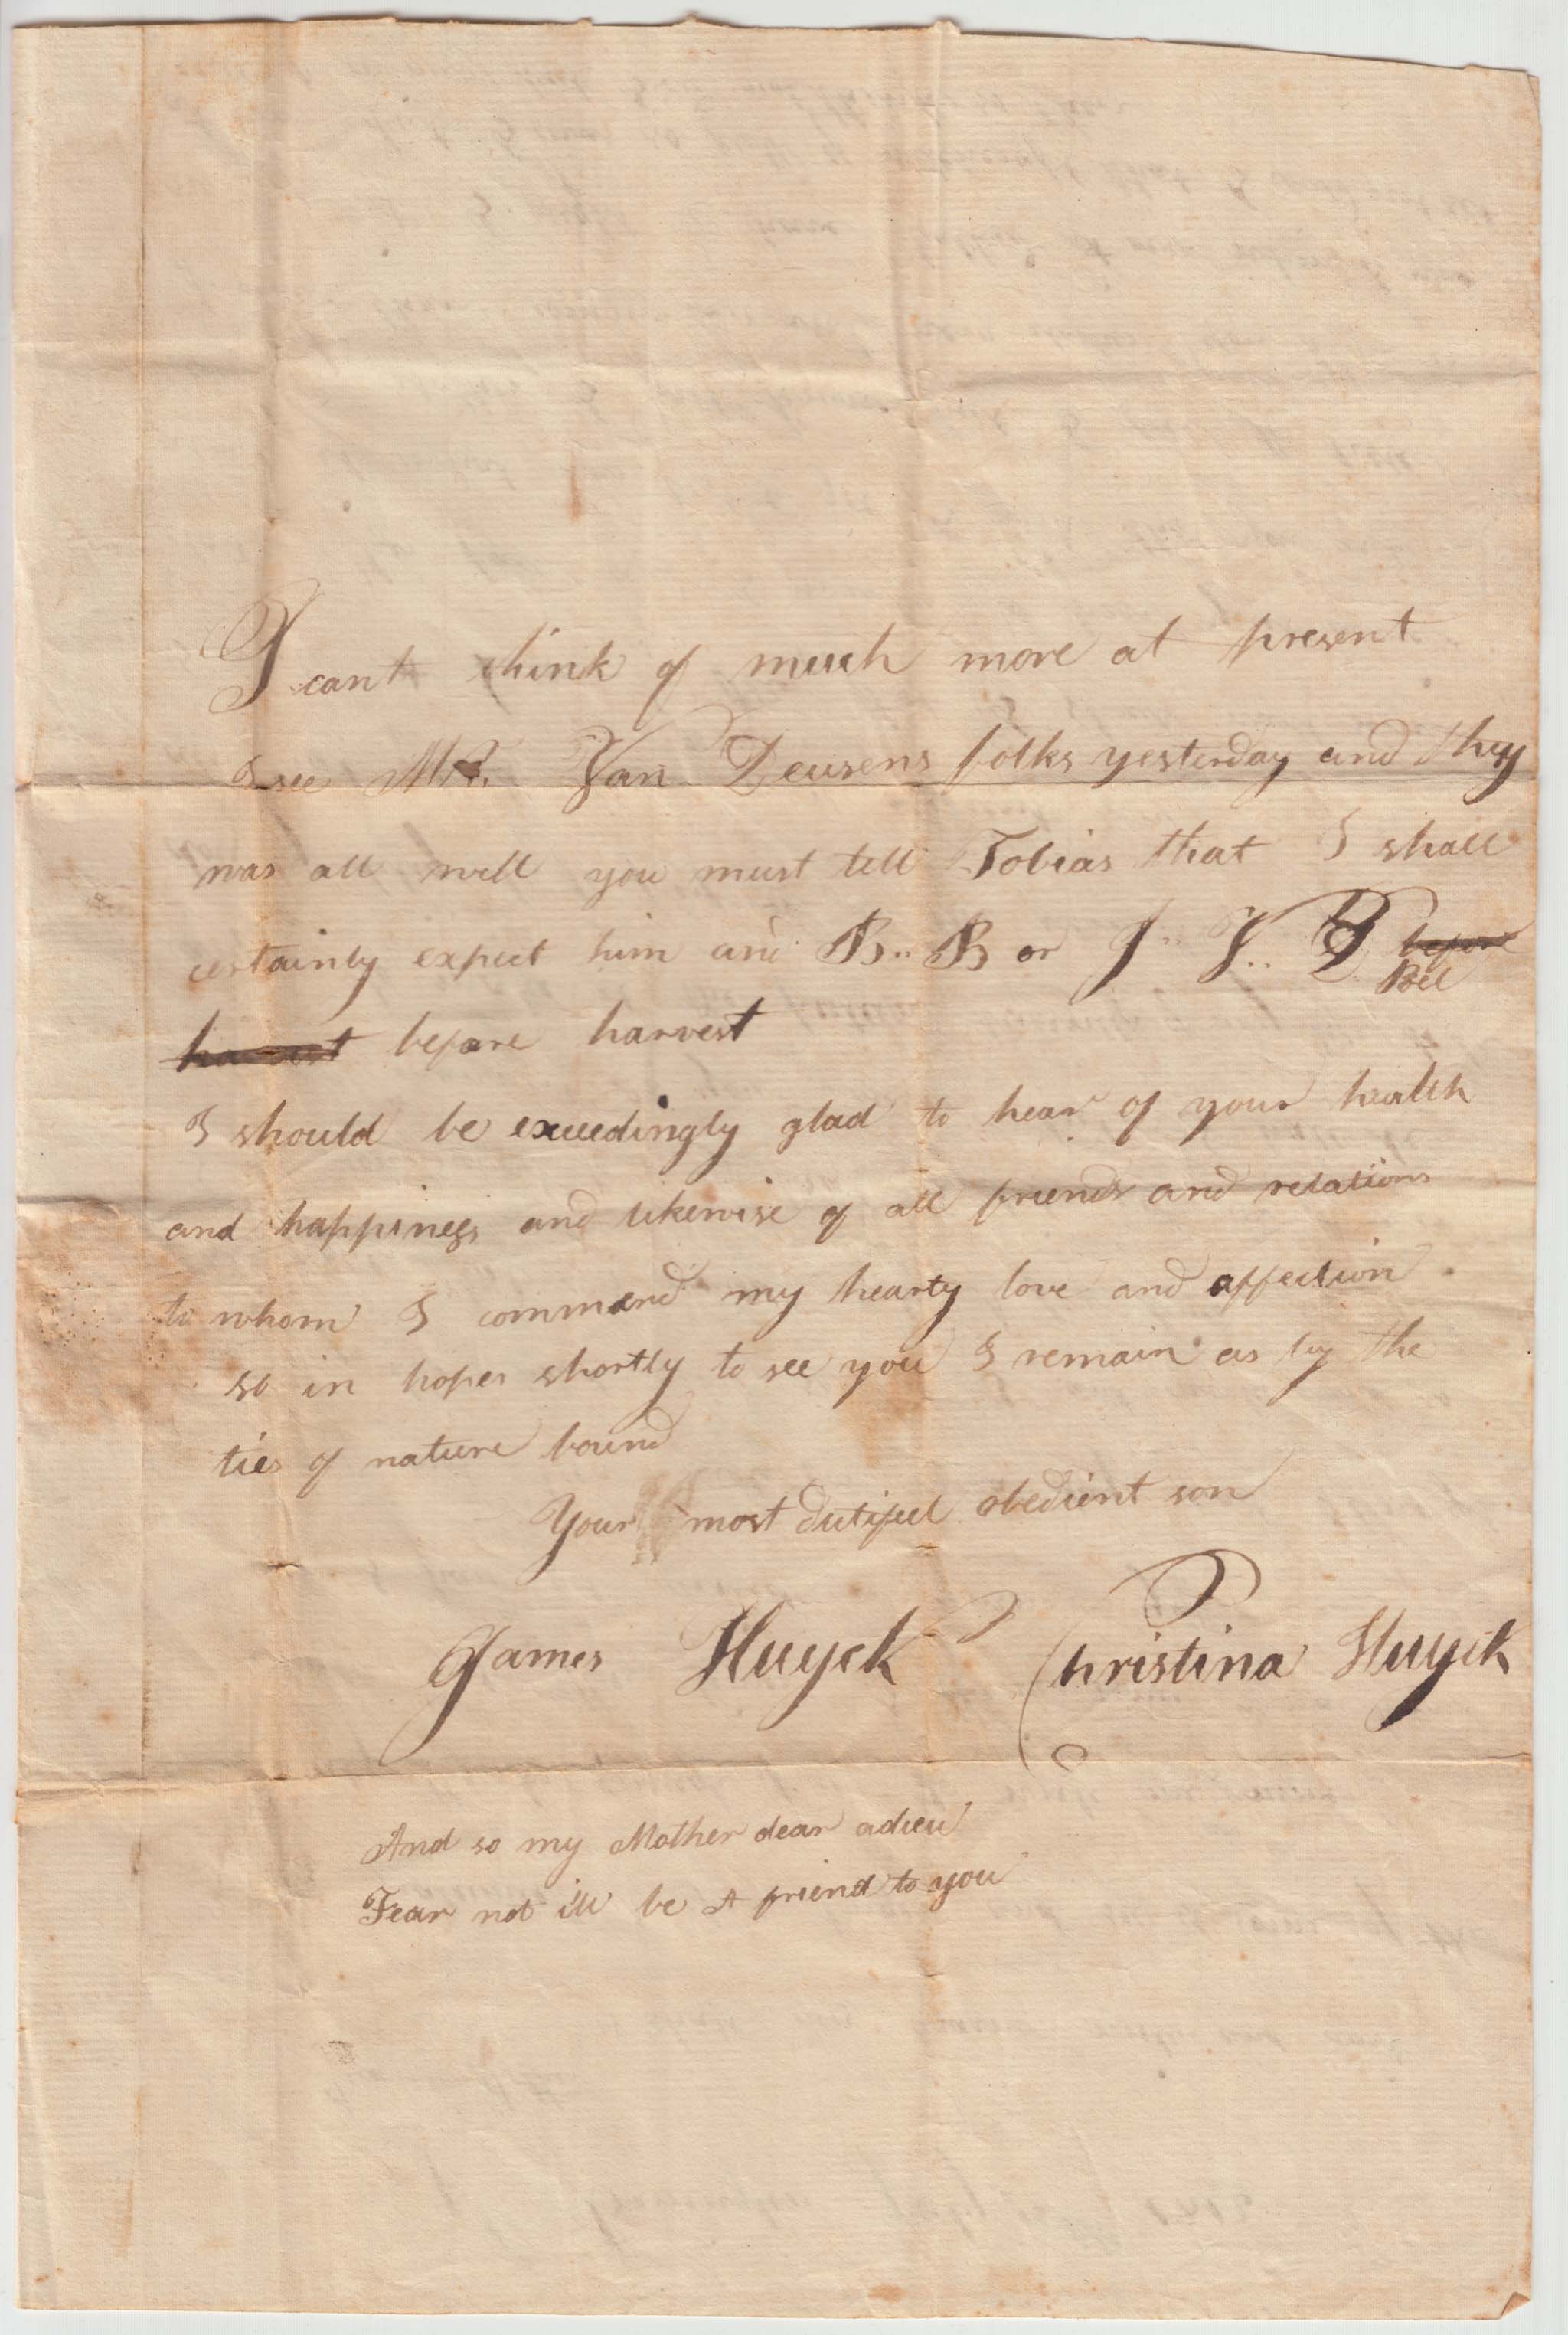 I cant think of much more at present
I see Mr. Van Deusens folks yesterday and they
was all well you must tell Tobias that I shall
certainly expect him and B.. B or J.. V.. D before
Poel
harvest before harvest
I should be exceedingly glad to hear of your health
and happiness and likewise of all friends and relations
to whom I commend my hearty love and affection
so in hopes shortly to see you I remain as by the
ties of nature bound
Your most dutifull obedient son
James Huyck Christina Huyck
And so my Mother dear adieu
Fear not ill be A friend to you